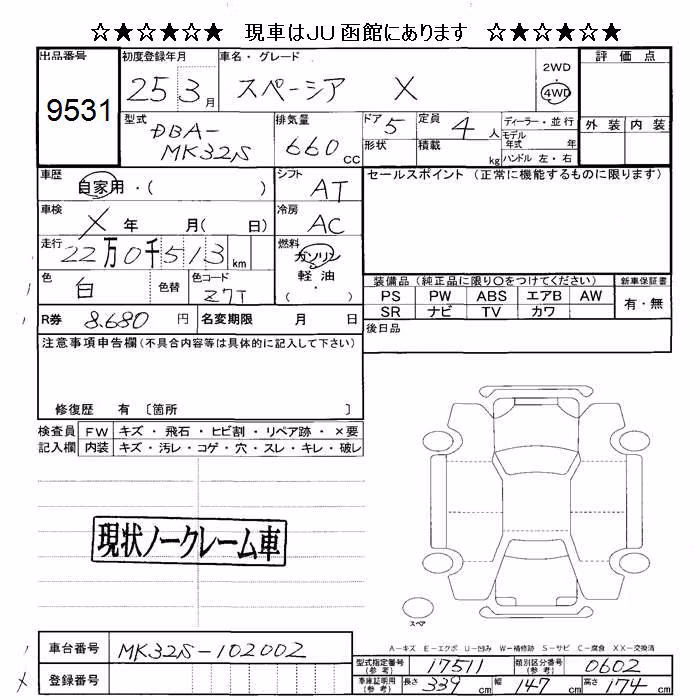 ☆★☆★☆★ 現車はJU函館にあります ☆★☆★☆★
出品番号 初度登録年月 車名・グレード 評価点
9531 25 3月 スペーシア X 2WD 4WD
外装 内装
型式 DBA-MK32S 排気量 660cc ドア 5 形状 定員 4人 積載 kg ディーラー・並行 モデル年式 年 ハンドル 左・右
車歴 自家用・( ) シフト AT セールスポイント (正常に機能するものに限ります)
車検 X年 月( 日) 冷房 AC
走行 22万0千513km 燃料 ガソリン 軽油 ・( )
色 白 色替 色コード Z7T
装備品(純正品に限り○をつけてください) 新車保証書
PS PW ABS エアB AW 有・無
SR ナビ TV カワ
R券 8.680円 名変期限 月 日 後日品
注意事項申告欄(不具合内容等は具体的に記入して下さい)
修復歴 有 〔箇所 〕
検査員 FW キズ・飛石・ヒビ割・リペア跡・×要
記入欄 内装 キズ・汚レ・コゲ・穴・スレ・キレ・破レ
現状ノークレーム車
スペア
A-キズ E-エクボ U-凹み W-補修跡 S-サビ C-腐食 XX-交換済
車台番号 MK32S-102002
登録番号
型式指定番号(参考) 17511 類別区分番号(参考) 0602
車庫証明用(参考) 長さ 339cm 幅 147cm 高さ 174cm